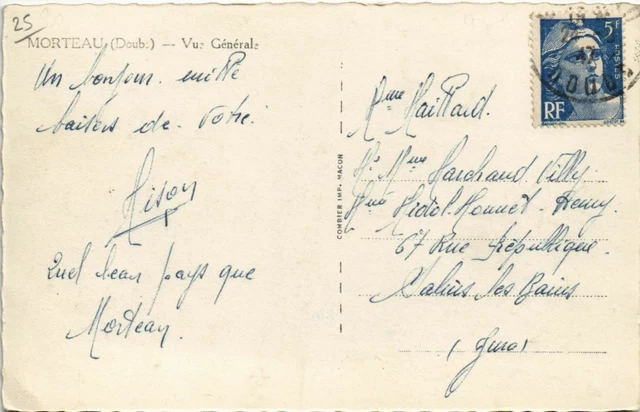 25
MORTEAU (Doubs) — Vue Générale
Un bonjour mille
baisers de votre
Quel beau pays que
Morteau.
COMBIER IMP. MACON
5F
POSTES
RF
DOUBS
Mme Maillard.
Mme Marchand Villy
67 Rue République.
Salins les Bains
(Jura)